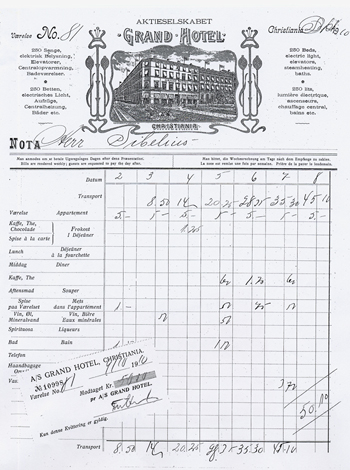 AKTIESELSKABET
GRAND HOTEL
CHRISTIANIA
Værelse No. 81
Christiania 1910
250 Senge,
elektrisk Belysning,
Elevatorer,
Centralopvarmning,
Badeværelser.
250 Betten,
electrisches Licht,
Aufzüge,
Centralheizung,
Bäder etc.
250 Beds,
electric light,
elevators,
steamheating,
baths.
250 lits,
lumière électrique,
ascenseurs,
chauffage central,
bains etc.
NOTA Herr Sibelius
Man anmodes om at betale Ugeregningen Dagen efter dens Præsentation.
Bills are rendered weekly; guests are requested to pay the day after.
Man bittet, die Wochenrechnung am Tage nach dem Empfange zu zahlen.
La note se rend une fois par semaine. Prière de la payer le lendemain.
Datum 2 3 4 5 6 7 8
Transport 8.50 14 20.25 28.25 35.30 45.10
Værelse Appartement 5- 5- 5- 5- 5- 5- 5-
Kaffe, The, Chocolade Frokost
Spise à la carte Déjeûner 8.25
Lunch Déjeûner à la fourchette
Middag Dîner
Kaffe, The 1.70
Aftensmad Souper
Spise paa Værelset Mets dans l'appartement 1-
Vin, Øl, Mineralvand Vin, Bière Eaux minérales
Spirituosa Liqueurs
Bad Bain 1-
Telefon
Haandbagage
A/S GRAND HOTEL, CHRISTIANIA.
№ 10998
Værelse No. 81
Modtaget Kr.
pr A/S GRAND HOTEL.
Kun denne Kvittering er gyldig.
50.10
Transport 8.50 14 20.25 35.30 45.10